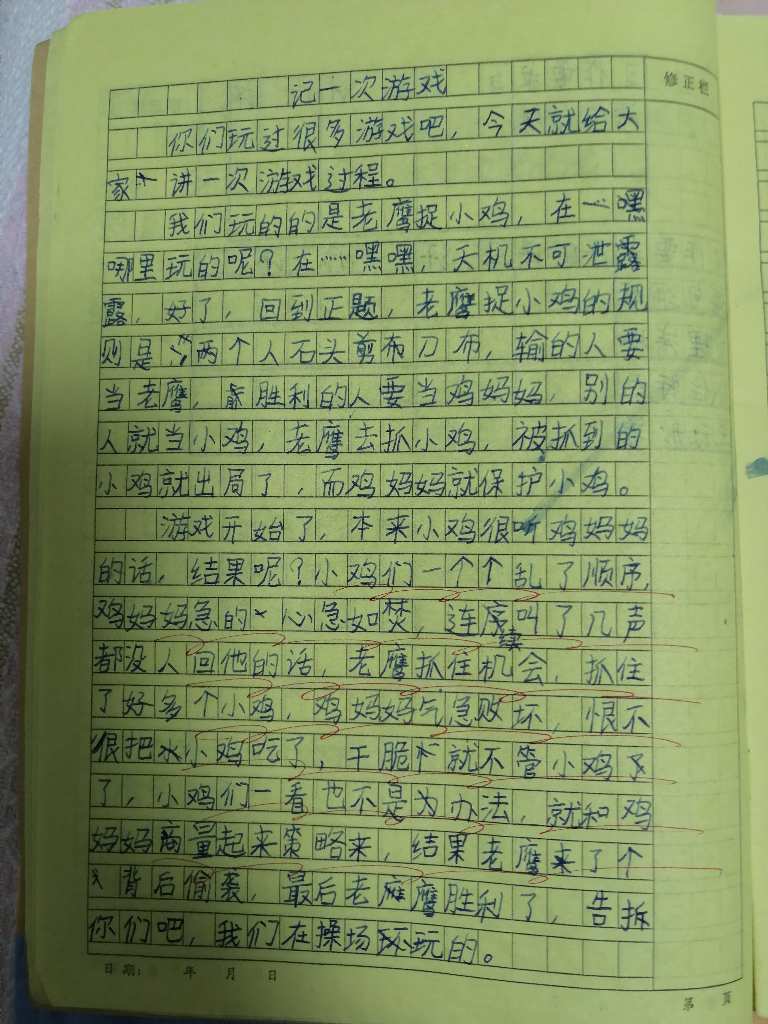 修正栏
记一次游戏
你们玩过很多游戏吧，今天就给大
家讲一次游戏过程。
我们玩的的是老鹰捉小鸡，在一嘿
哪里玩的呢？在……嘿嘿，天机不可泄露
露，好了，回到正题，老鹰捉小鸡的规
则是：两个人石头剪布刀布，输的人要
当老鹰，胜利的人要当鸡妈妈，别的
人就当小鸡，老鹰去抓小鸡，被抓到的
小鸡就出局了，而鸡妈妈就保护小鸡。
游戏开始了，本来小鸡很听鸡妈妈
的话，结果呢？小鸡们一个个乱了顺序，
鸡妈妈急的心急如焚，连续叫了几声
都没人回他的话，老鹰抓住机会，抓住
了好多个小鸡，鸡妈妈气急败坏，恨不
很把小鸡吃了，干脆就不管小鸡了
了，小鸡们一看也不是为办法，就和鸡
妈妈商量起来策略来，结果老鹰来了个
背后偷袭，最后老鹰胜利了，告拆
你们吧，我们在操场环玩的。
日期： 年 月 日
第 页